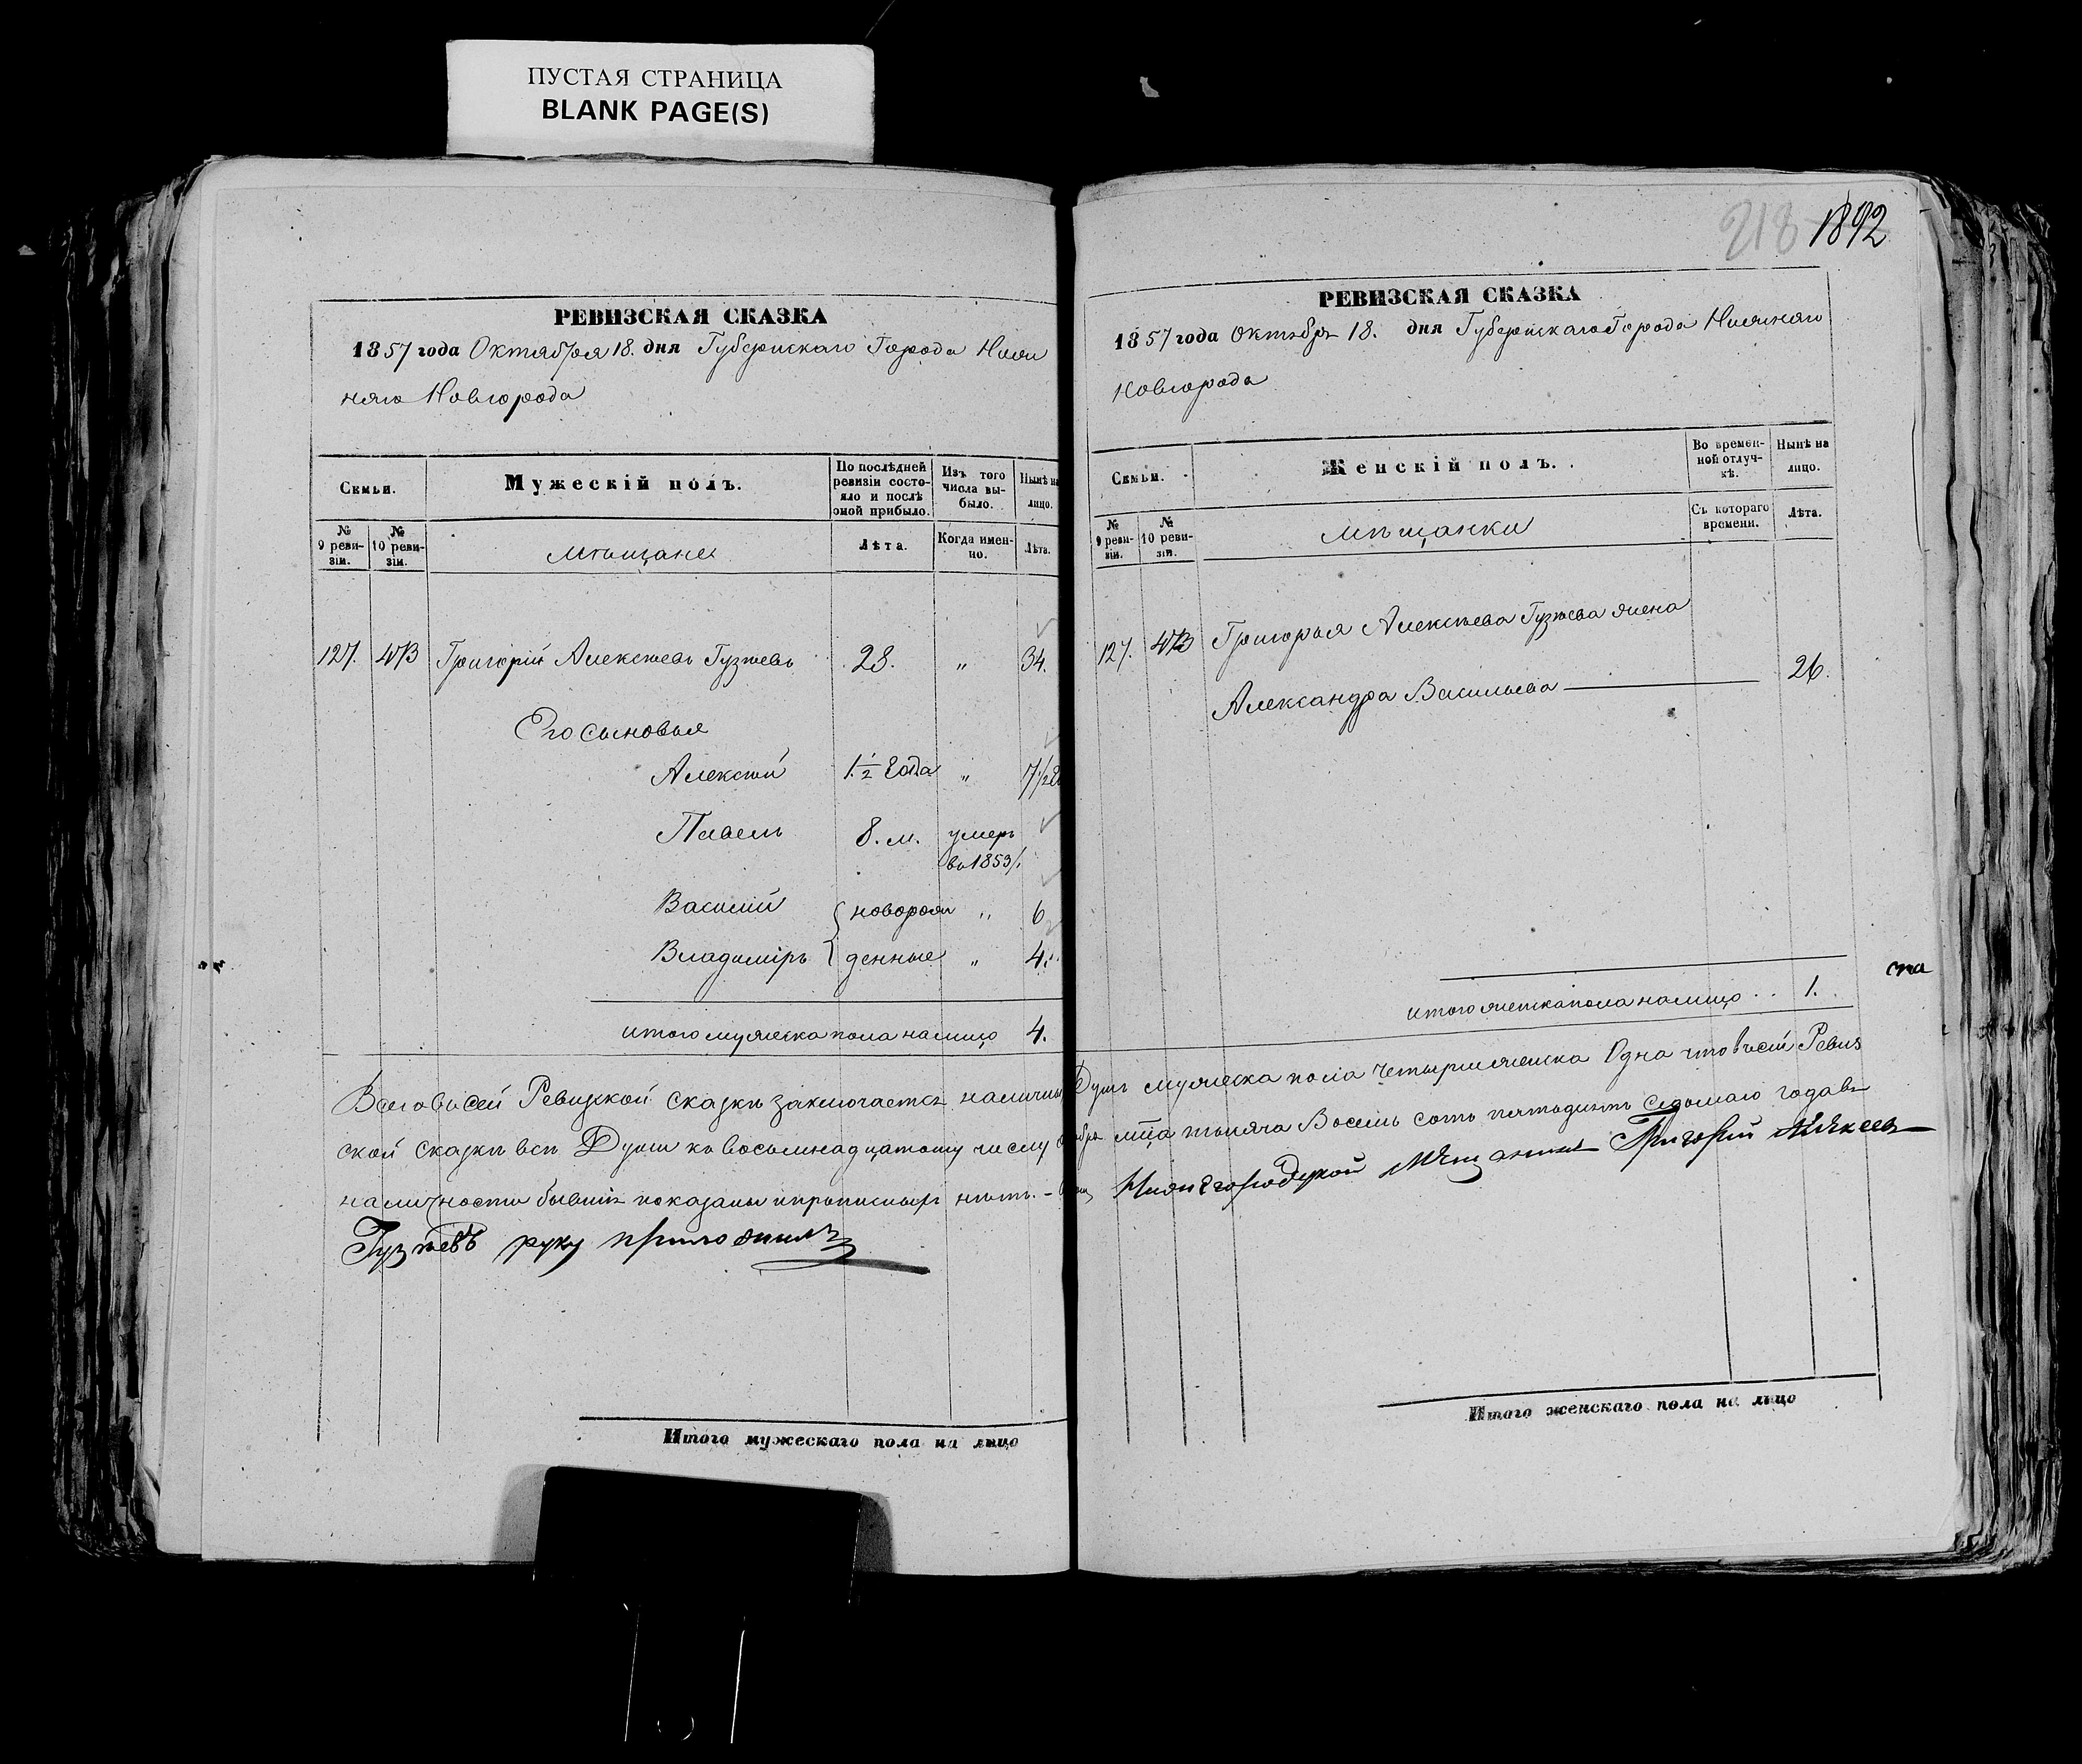 ПУСТАЯ СТРАНИЦА
BLANK PAGE(S)
РЕВИЗСКАЯ СКАЗКА
1857 года Октября 18. дня Губернскаго Города Ниж
няго Новгорода
Семьи.
Мужескій полъ.
По послѣдней ревизіи состояло и послѣ оной прибыло.
Изъ того числа выбыло.
Нынѣ на лицо.
№ 9 ревизіи.
№ 10 ревизіи.
мѣщане
Лѣта.
Когда именно.
Лѣта.
127. 473 Григорій Алексѣевъ Гузѣевъ 28. „ 34.
Его сыновья
Алексѣй 1 1/2 года „ 7 1/2
Павелъ 8. м. умеръ
въ 1853 г.
Василій новорож „ 6
Владиміръ денные „ 4.
итого мужеска пола налицо 4.
Всего въ сей Ревизской сказкѣ заключается наличны
ской сказкѣ всѣ Души къ восемнадцатому числу
наличности бывшія показаны и прописныхъ нѣтъ. –
Гузѣевъ руку приложилъ
Итого мужескаго пола на лицо
218 1892
РЕВИЗСКАЯ СКАЗКА
1857 года Октября 18. дня Губернскаго Города Нижняго
Новгорода
Семьи.
Женскій полъ.
Во временной отлучкѣ.
Нынѣ на лицо.
№ 9 ревизіи.
№ 10 ревизіи.
мѣщанки
Съ котораго времени.
Лѣта.
127. 473 Григорья Алексѣева Гузѣева жена
Александра Васильева 26.
итого женска пола налицо . . 1.
ста
Душъ мужеска пола четыре женска Одна что въ сей Ревиз
мца тысяча Восемь сотъ пятьдесятъ седьмаго года въ
Нижегородской Мѣщанинъ Григорій Алексѣевъ
Итого женскаго пола на лицо